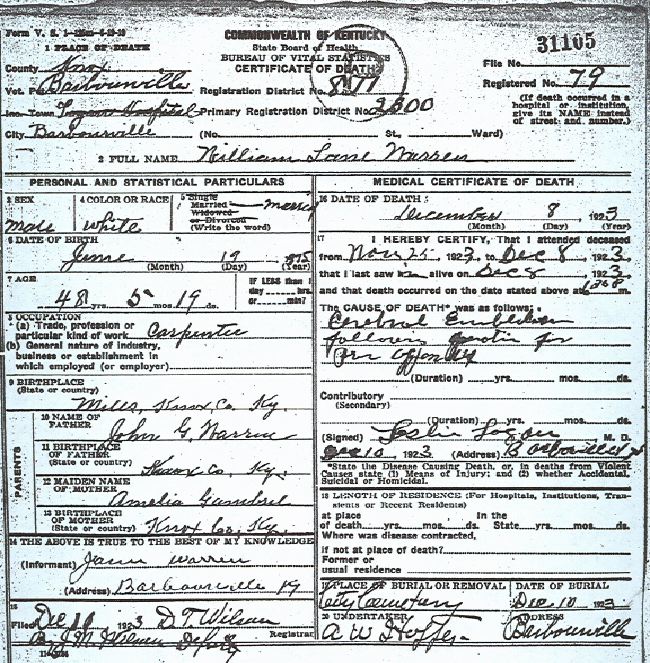 COMMONWEALTH OF KENTUCKY
State Board of Health
BUREAU OF VITAL STATISTICS
CERTIFICATE OF DEATH
1 PLACE OF DEATH
County Knox
File No. 31105
Vot. Barbourville
Registration District No.
Registered No. 79
Inc. Town Logan Hospital Primary Registration District No. 2300
(If death occurred in a hospital or institution, give its NAME instead of street and number.)
City Barbourville (No. St., Ward)
2 FULL NAME William Lane Warren
PERSONAL AND STATISTICAL PARTICULARS
3 SEX Male
4 COLOR OR RACE White
5 Single Married Widowed or Divorced (Write the word) Married
6 DATE OF BIRTH
June 19 1875
(Month) (Day) (Year)
7 AGE
48 yrs. 5 mos. 19 ds.
IF LESS than 1 day hrs. or min?
8 OCCUPATION
(a) Trade, profession or particular kind of work Carpenter
(b) General nature of industry, business or establishment in which employed (or employer)
9 BIRTHPLACE
(State or country)
Mills, Knox Co. Ky.
PARENTS
10 NAME OF FATHER John G. Warren
11 BIRTHPLACE OF FATHER (State or country) Knox Co, Ky.
12 MAIDEN NAME OF MOTHER Amelia Gambrel
13 BIRTHPLACE OF MOTHER (State or country) Knox Co. Ky.
14 THE ABOVE IS TRUE TO THE BEST OF MY KNOWLEDGE
(Informant) Warren
(Address) Barbourville Ky
15
Filed Dec 1923 D. T. Wilson
Registrar
By J. M. Wilson Deputy
MEDICAL CERTIFICATE OF DEATH
16 DATE OF DEATH
December 8 1923
(Month) (Day) (Year)
17 I HEREBY CERTIFY, That I attended deceased
from Nov 25 1923 to Dec 8, 1923
that I last saw him alive on Dec 8 1923
and that death occurred on the date stated above at m.
The CAUSE OF DEATH* was as follows:
Cerebral Embolism
for
(Duration) yrs. mos. ds.
Contributory
(Secondary)
(Duration) yrs. mos. ds.
(Signed) Leslie Logan M. D.
Dec 10 1923 (Address) Barbourville Ky
*State the Disease Causing Death, or, in deaths from Violent Causes state (1) Means of Injury; and (2) whether Accidental, Suicidal or Homicidal.
18 LENGTH OF RESIDENCE (For Hospitals, Institutions, Transients or Recent Residents)
at place of death yrs. mos. ds. In the State yrs. mos. ds.
Where was disease contracted,
if not at place of death?
Former or usual residence
19 PLACE OF BURIAL OR REMOVAL
City Cemetery
DATE OF BURIAL
Dec 10 1923
20 UNDERTAKER
A W Hopper
ADDRESS
Barbourville